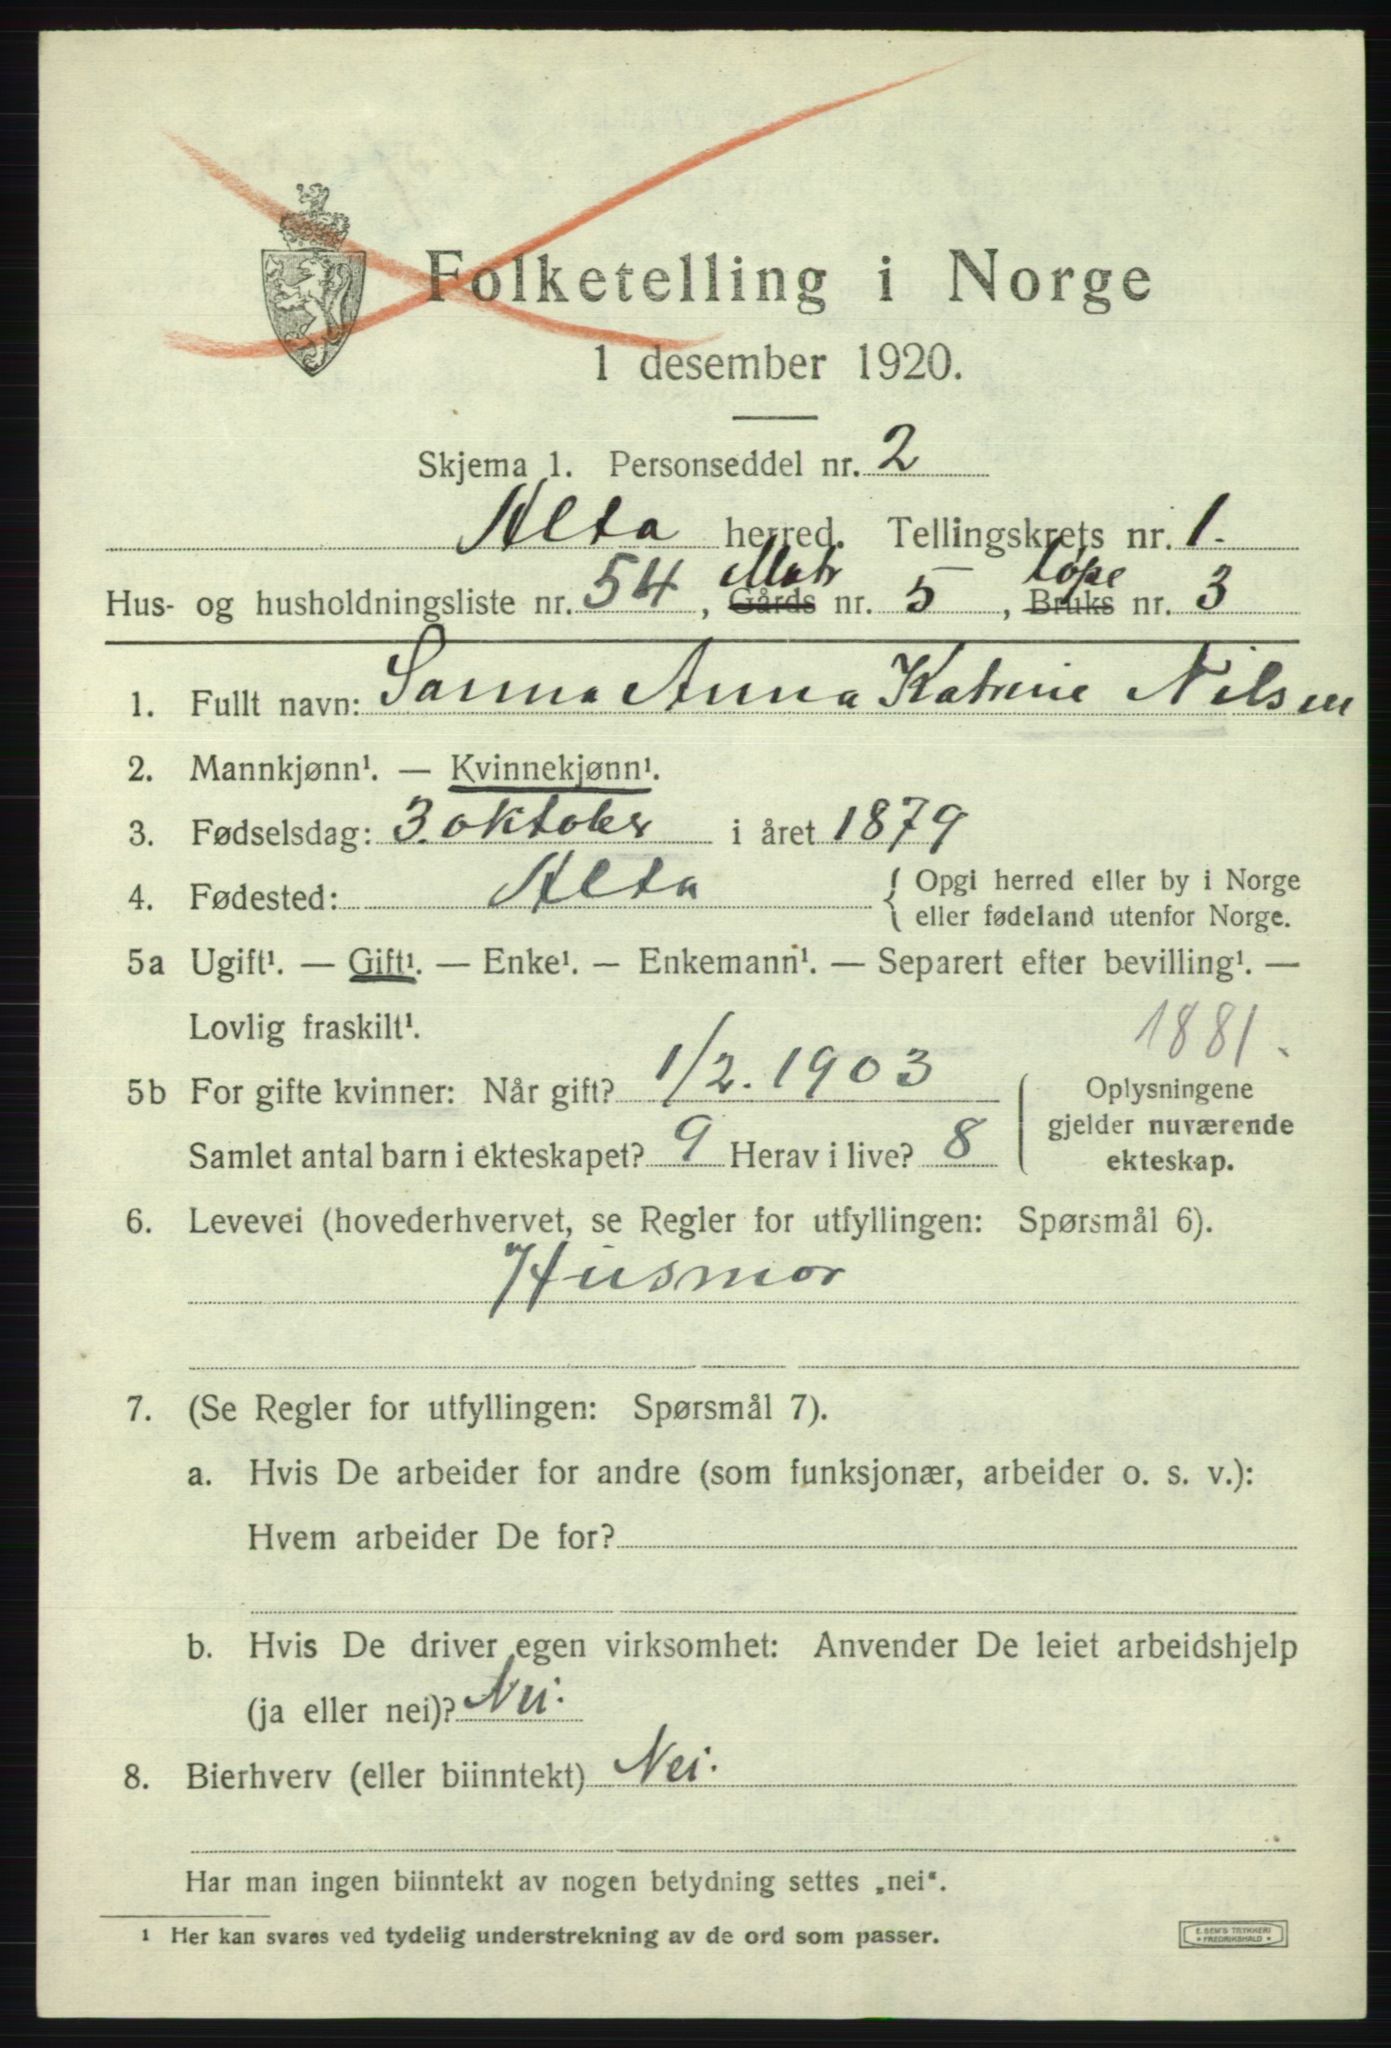 Folketelling i Norge
1 desember 1920.
Skjema 1. Personseddel nr. 2
Alta herred. Tellingskrets nr. 1.
Matr Løpe
Hus- og husholdningsliste nr. 54, Gårds nr. 5, Bruks nr. 3
1. Fullt navn: Sanna Anna Katrine Nilsen
2. Mannkjønn¹. — Kvinnekjønn¹.
3. Fødselsdag: 3. oktober i året 1879
4. Fødested: Alta { Opgi herred eller by i Norge
eller fødeland utenfor Norge.
5a Ugift¹. — Gift¹. — Enke¹. — Enkemann¹. — Separert efter bevilling¹. —
Lovlig fraskilt¹.
1881.
5b For gifte kvinner: Når gift? 1/2. 1903
Samlet antal barn i ekteskapet? 9 Herav i live? 8
Oplysningene
gjelder nuværende
ekteskap.
6. Levevei (hovederhvervet, se Regler for utfyllingen: Spørsmål 6).
Husmor
7. (Se Regler for utfyllingen: Spørsmål 7).
a. Hvis De arbeider for andre (som funksjonær, arbeider o. s. v.):
Hvem arbeider De for?
b. Hvis De driver egen virksomhet: Anvender De leiet arbeidshjelp
(ja eller nei)? Nei.
8. Bierhverv (eller biinntekt) Nei.
Har man ingen biinntekt av nogen betydning settes „nei“.
¹ Her kan svares ved tydelig understrekning av de ord som passer.
E. SEM'S TRYKKERI
* FREDRIKSHALD *